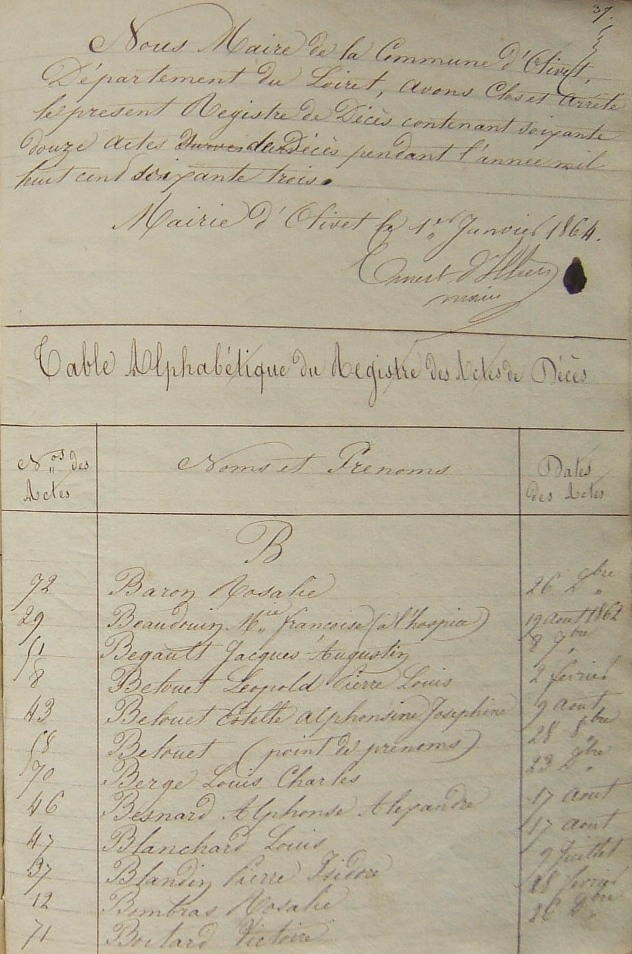 37.
Nous Maire de la Commune d'Olivet,
Département du Loiret, avons Clos et arrêté
le present Registre de Décès contenant soixante
douze actes de Décès pendant l'année mil
huit cent soixante trois.
Mairie d'Olivet le 1er Janvier 1864.
Ernest d'Illiers
maire
Table Alphabétique du Registre des Actes de Décès
Nos des Actes Noms et Prenoms Dates des Actes
B
72 Baron Rosalie 26 Xbre
29 Beaudouin Mie francoise (à l'hospice) 19 aout 1862
51 Begault Jacques Augustin 8 7bre
8 Belouet Leopold Pierre Louis 2 fevrier
43 Belouet Estelle alphonsine Josephine 9 aout
58 Belouet (point de prenoms) 28 8bre
70 Berge Louis Charles 23 Xbre
46 Besnard Alphonse Alexandre 17 aout
47 Blanchard Louis 17 aout
37 Blandin Pierre Isidore 9 Juillet
12 Bombras Rosalie 18 fevrier
71 Boitard Victoire 26 Xbre